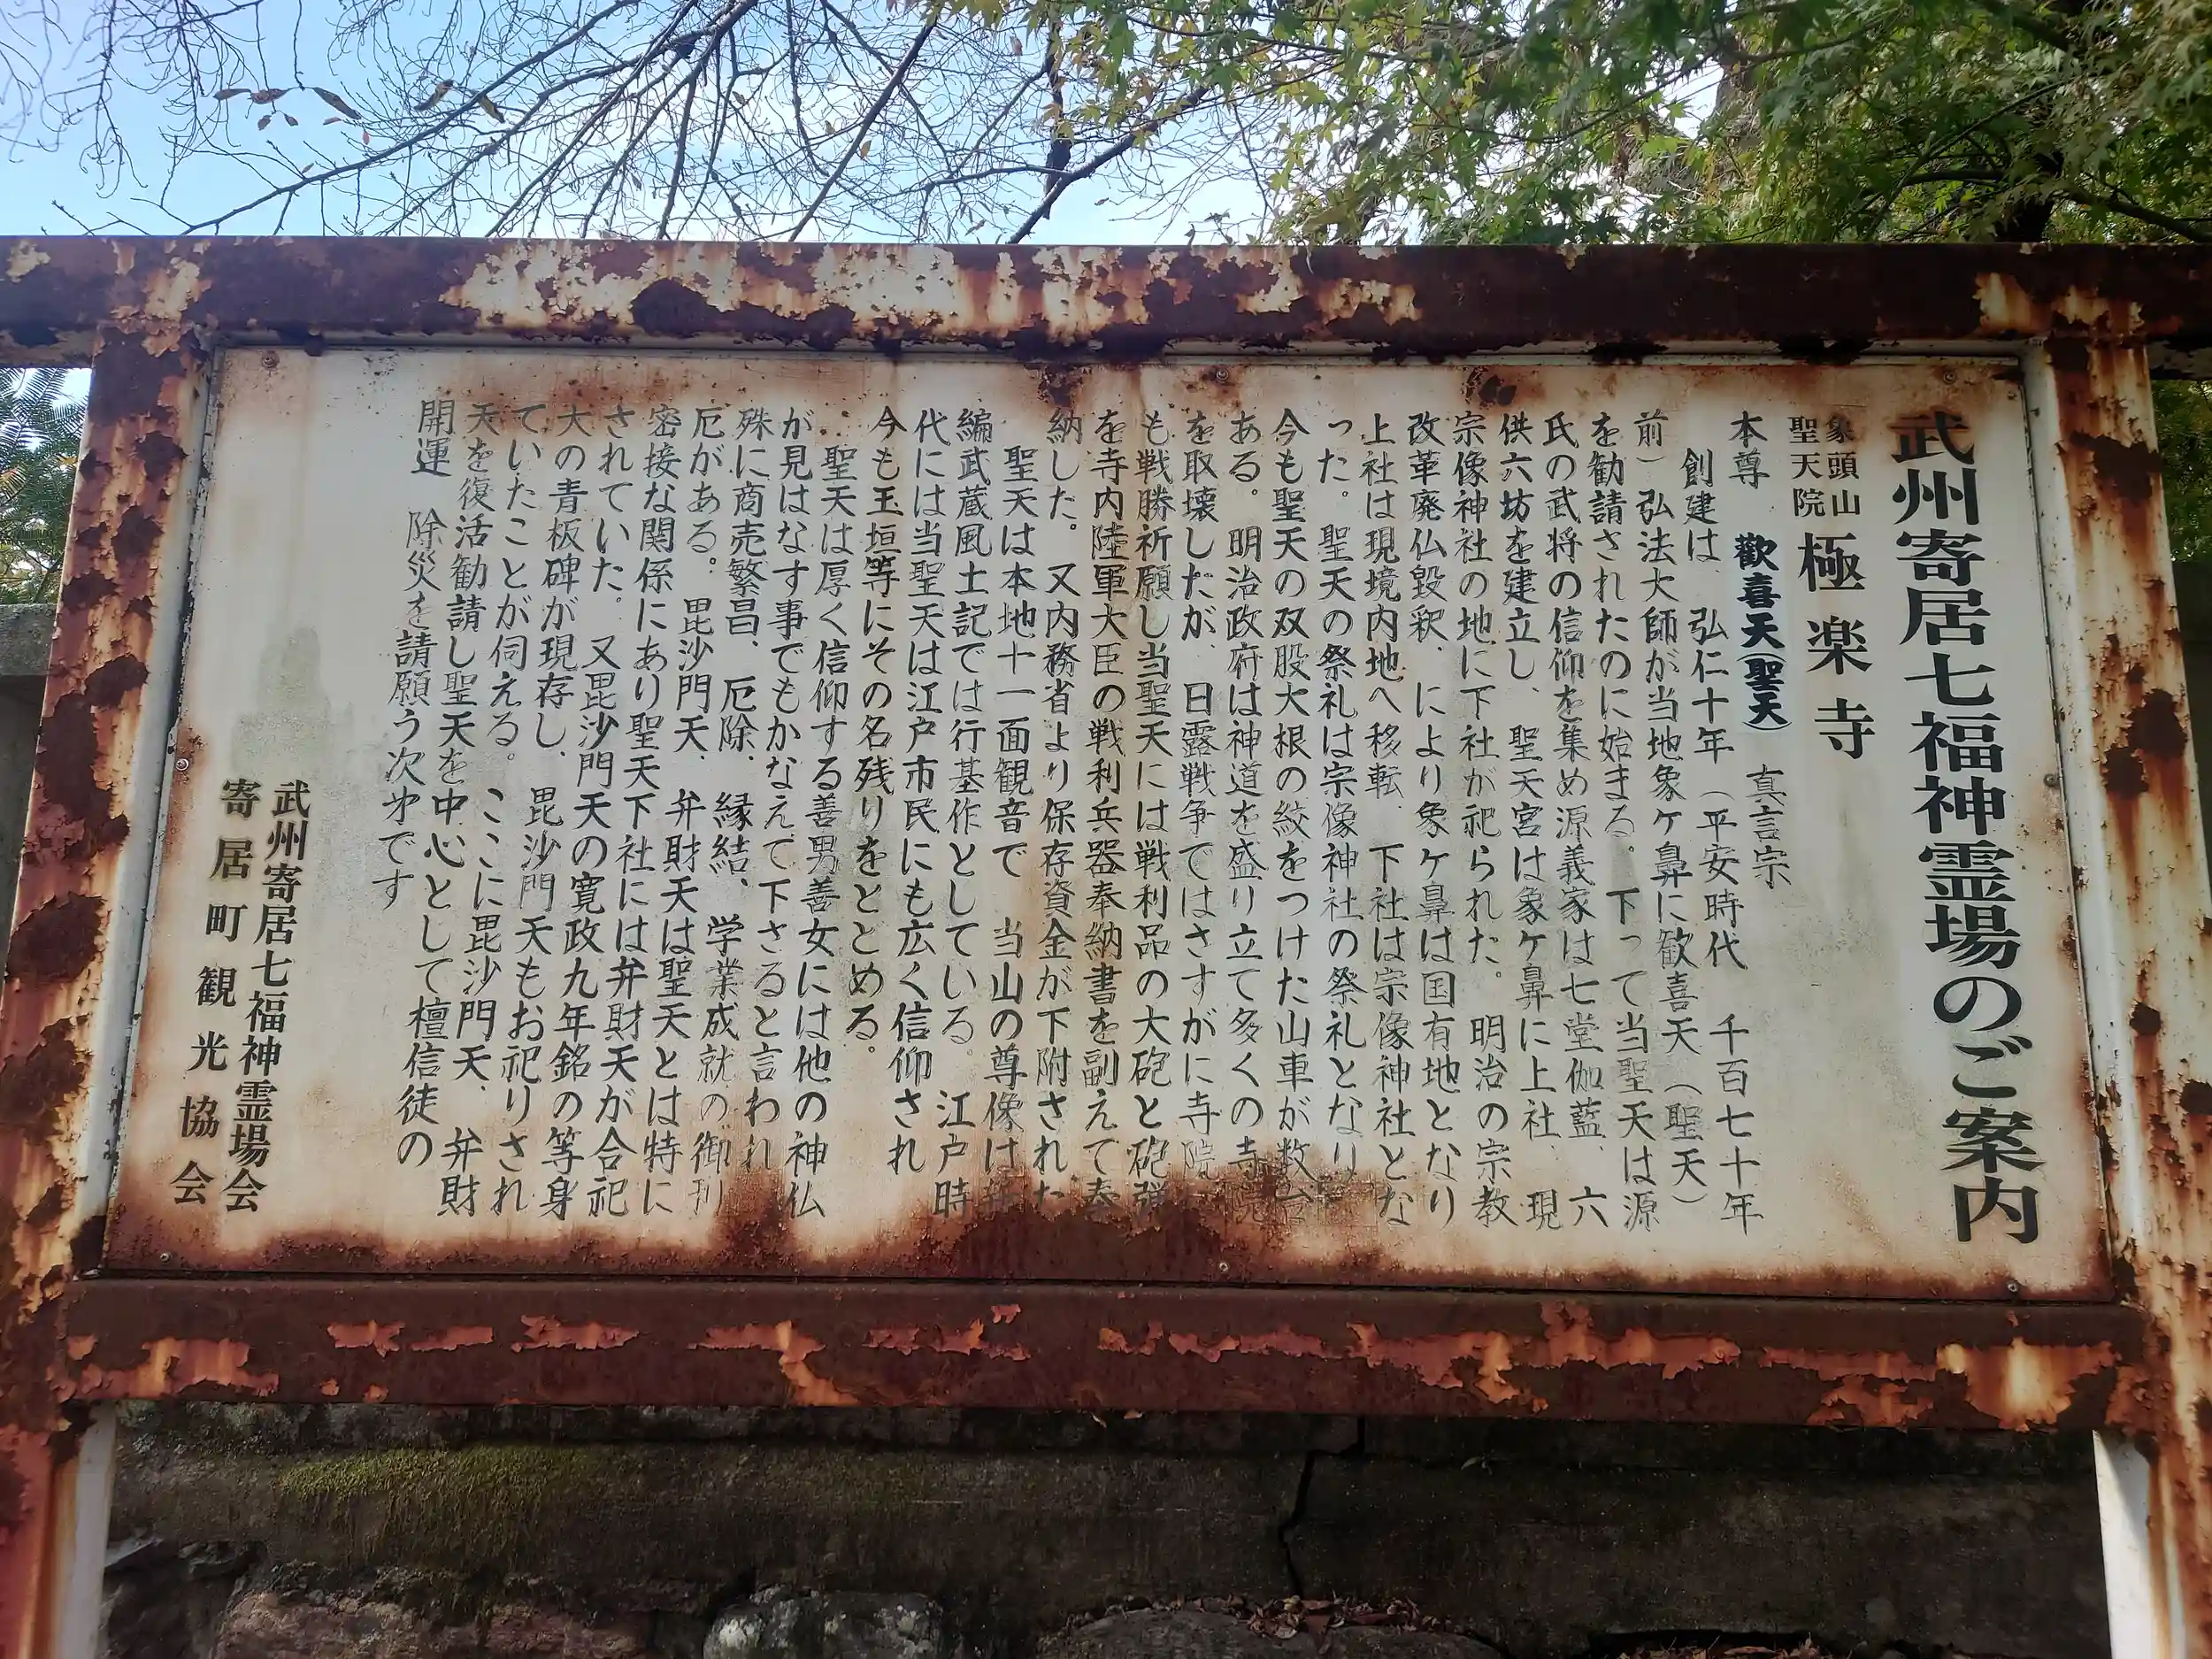 武州寄居七福神霊場のご案内
象頭山
聖天院
極楽寺
本尊 歓喜天(聖天) 真言宗
創建は 弘仁十年(平安時代 千百七十年
前)弘法大師が当地象ケ鼻に歓喜天(聖天)
を勧請されたのに始まる。下って当聖天は源
氏の武将の信仰を集め源義家は七堂伽藍、六
供六坊を建立し、聖天宮は象ケ鼻に上社、現
宗像神社の地に下社が祀られた。明治の宗教
改革廃仏毀釈、により象ケ鼻は国有地となり
上社は現境内地へ移転、下社は宗像神社とな
った。聖天の祭礼は宗像神社の祭礼となり
今も聖天の双股大根の絞をつけた山車が数台
ある。明治政府は神道を盛り立て多くの寺院
を取壊しだが、日露戦争ではさすがに寺院
も戦勝祈願し当聖天には戦利品の大砲と砲弾
を寺内陸軍大臣の戦利兵器奉納書を副えて奉
納した。又内務省より保存資金が下附された
聖天は本地十一面観音で 当山の尊像は新
編武蔵風土記では行基作としている。江戸時
代には当聖天は江戸市民にも広く信仰され
今も玉垣等にその名残りをとどめる。
聖天は厚く信仰する善男善女には他の神仏
が見はなす事でもかなえて下さると言われ
殊に商売繁昌、厄除、縁結、学業成就の御利
厄がある。毘沙門天、弁財天は聖天とは特に
密接な関係にあり聖天下社には弁財天が合祀
されていた。又毘沙門天の寛政九年銘の等身
大の青板碑が現存し、毘沙門天もお祀りされ
ていたことが伺える。ここに毘沙門天、弁財
天を復活勧請し聖天を中心として檀信徒の
開運 除災を請願う次才です
武州寄居七福神霊場会
寄居町観光協会